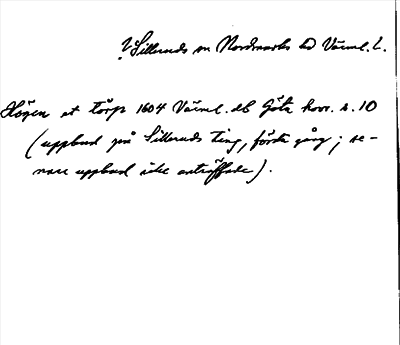 ? Silleruds sn Nordmarks hd Värml. l.
Högen et torp 1604 Värml. db Göta hovr. s. 10
(uppbud på Silleruds ting, första gång; se-
nare uppbud icke anträffade).